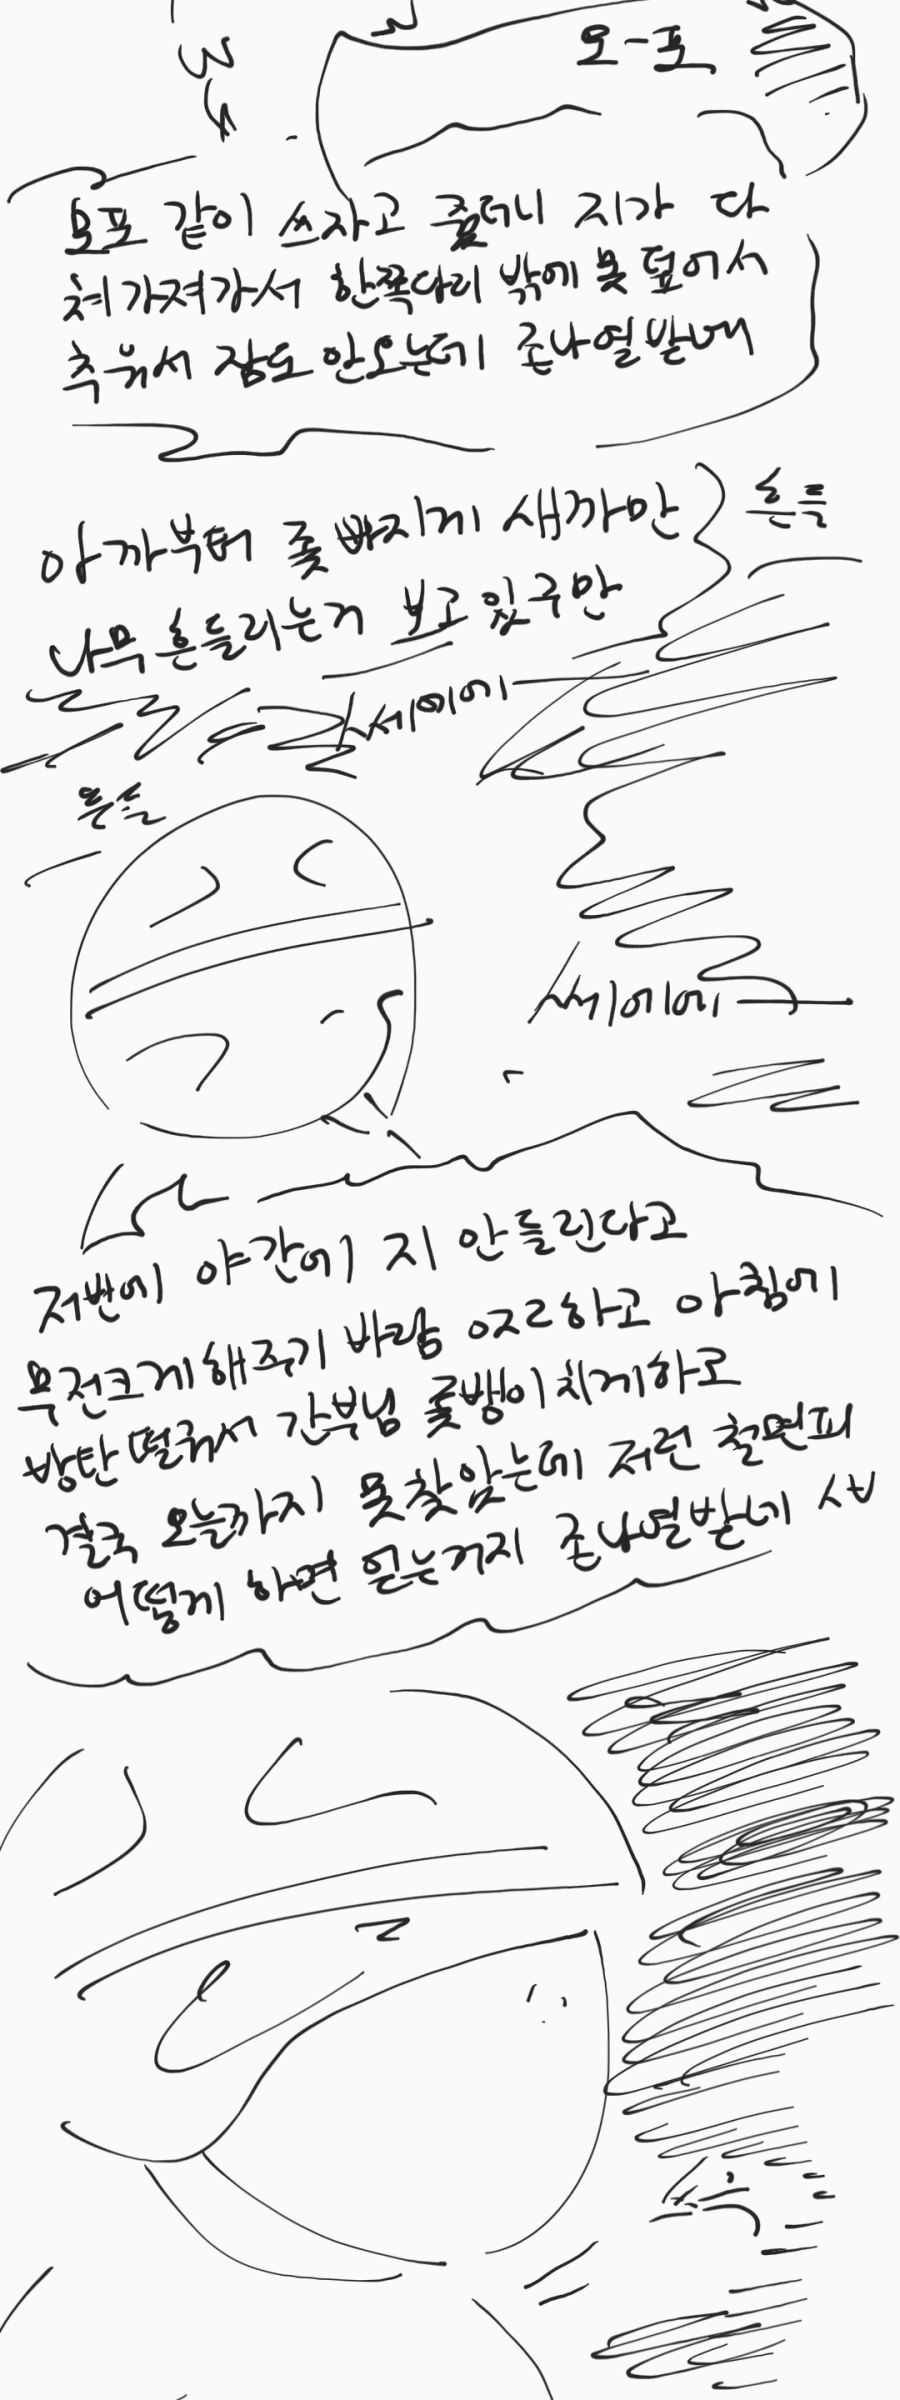 모-포
모포 같이 쓰자고 줬더니 지가 다
쳐가져가서 한쪽다리 밖에 못 덮어서
추워서 잠도 안오는데 존나열받네
아까부터 좆빠지게 새까만
나무흔들리는거 보고있구만
흔들
쎄에에
흔들
쎄에에에
저번에 야간에 지 안들린다고
무전크게해주기 바람 ㅇㅈㄹ하고 아침에
방탄 떨궈서 간부님 좆뱅이치게하고
결국 오늘까지 못찾았는데 저런 철면피
어떻게 하면 얻는거지 존나열받네 ㅅㅂ
쓰윽